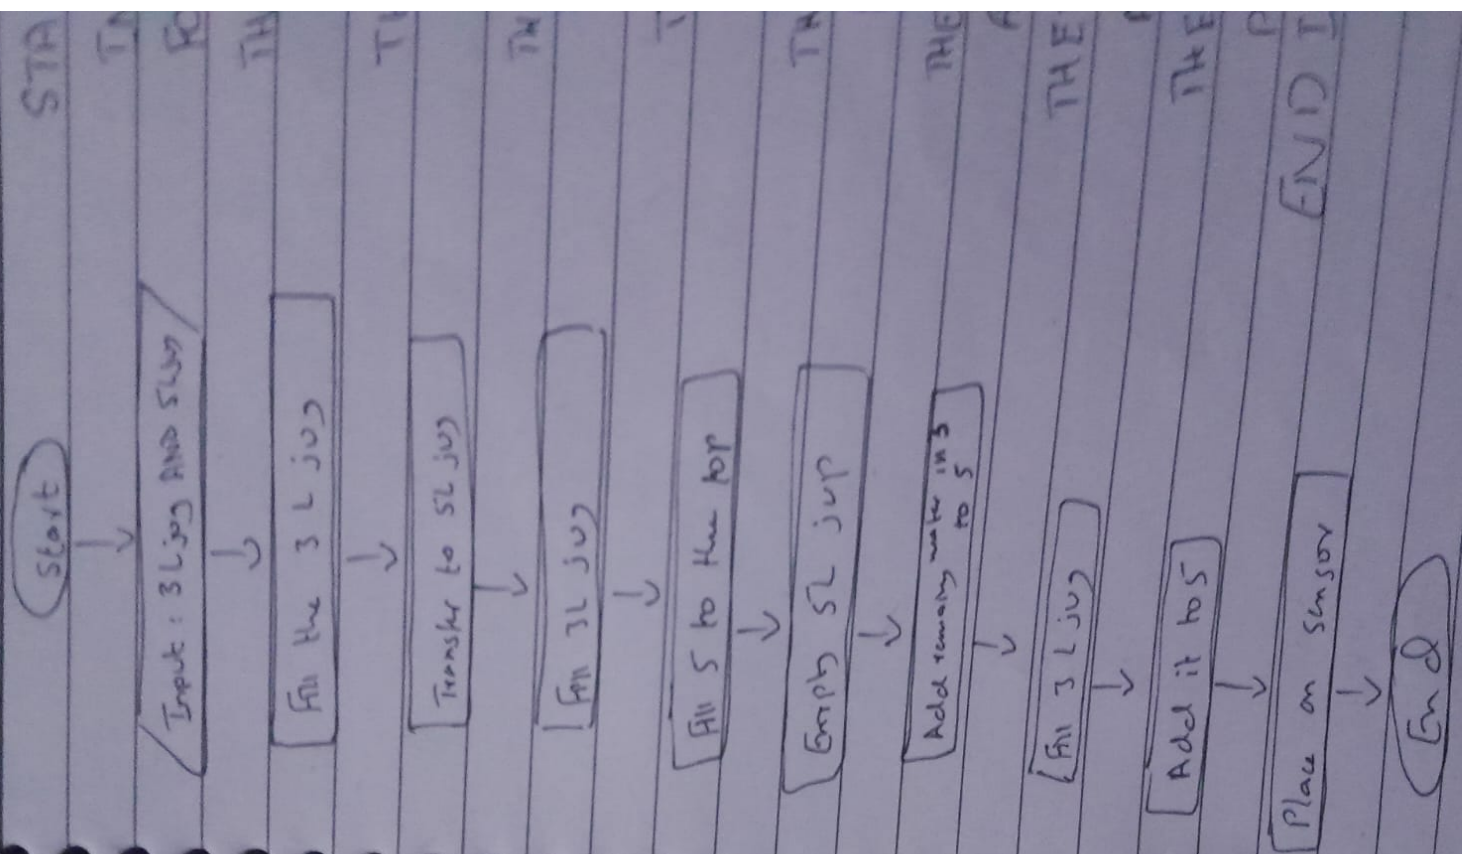 Start
Input : 3L jug AND 5L jug
Fill the 3 L jug
Transfer to 5L jug
Fill 3L jug
Fill 5 to the top
Empty 5L jup
Add remaing water in 3
to 5
Fill 3 L jug
Add it to 5
Place on sensor
End
STA
IN
FO
TH
TH
TH
T
TH
THE
A
THE
THE
END I